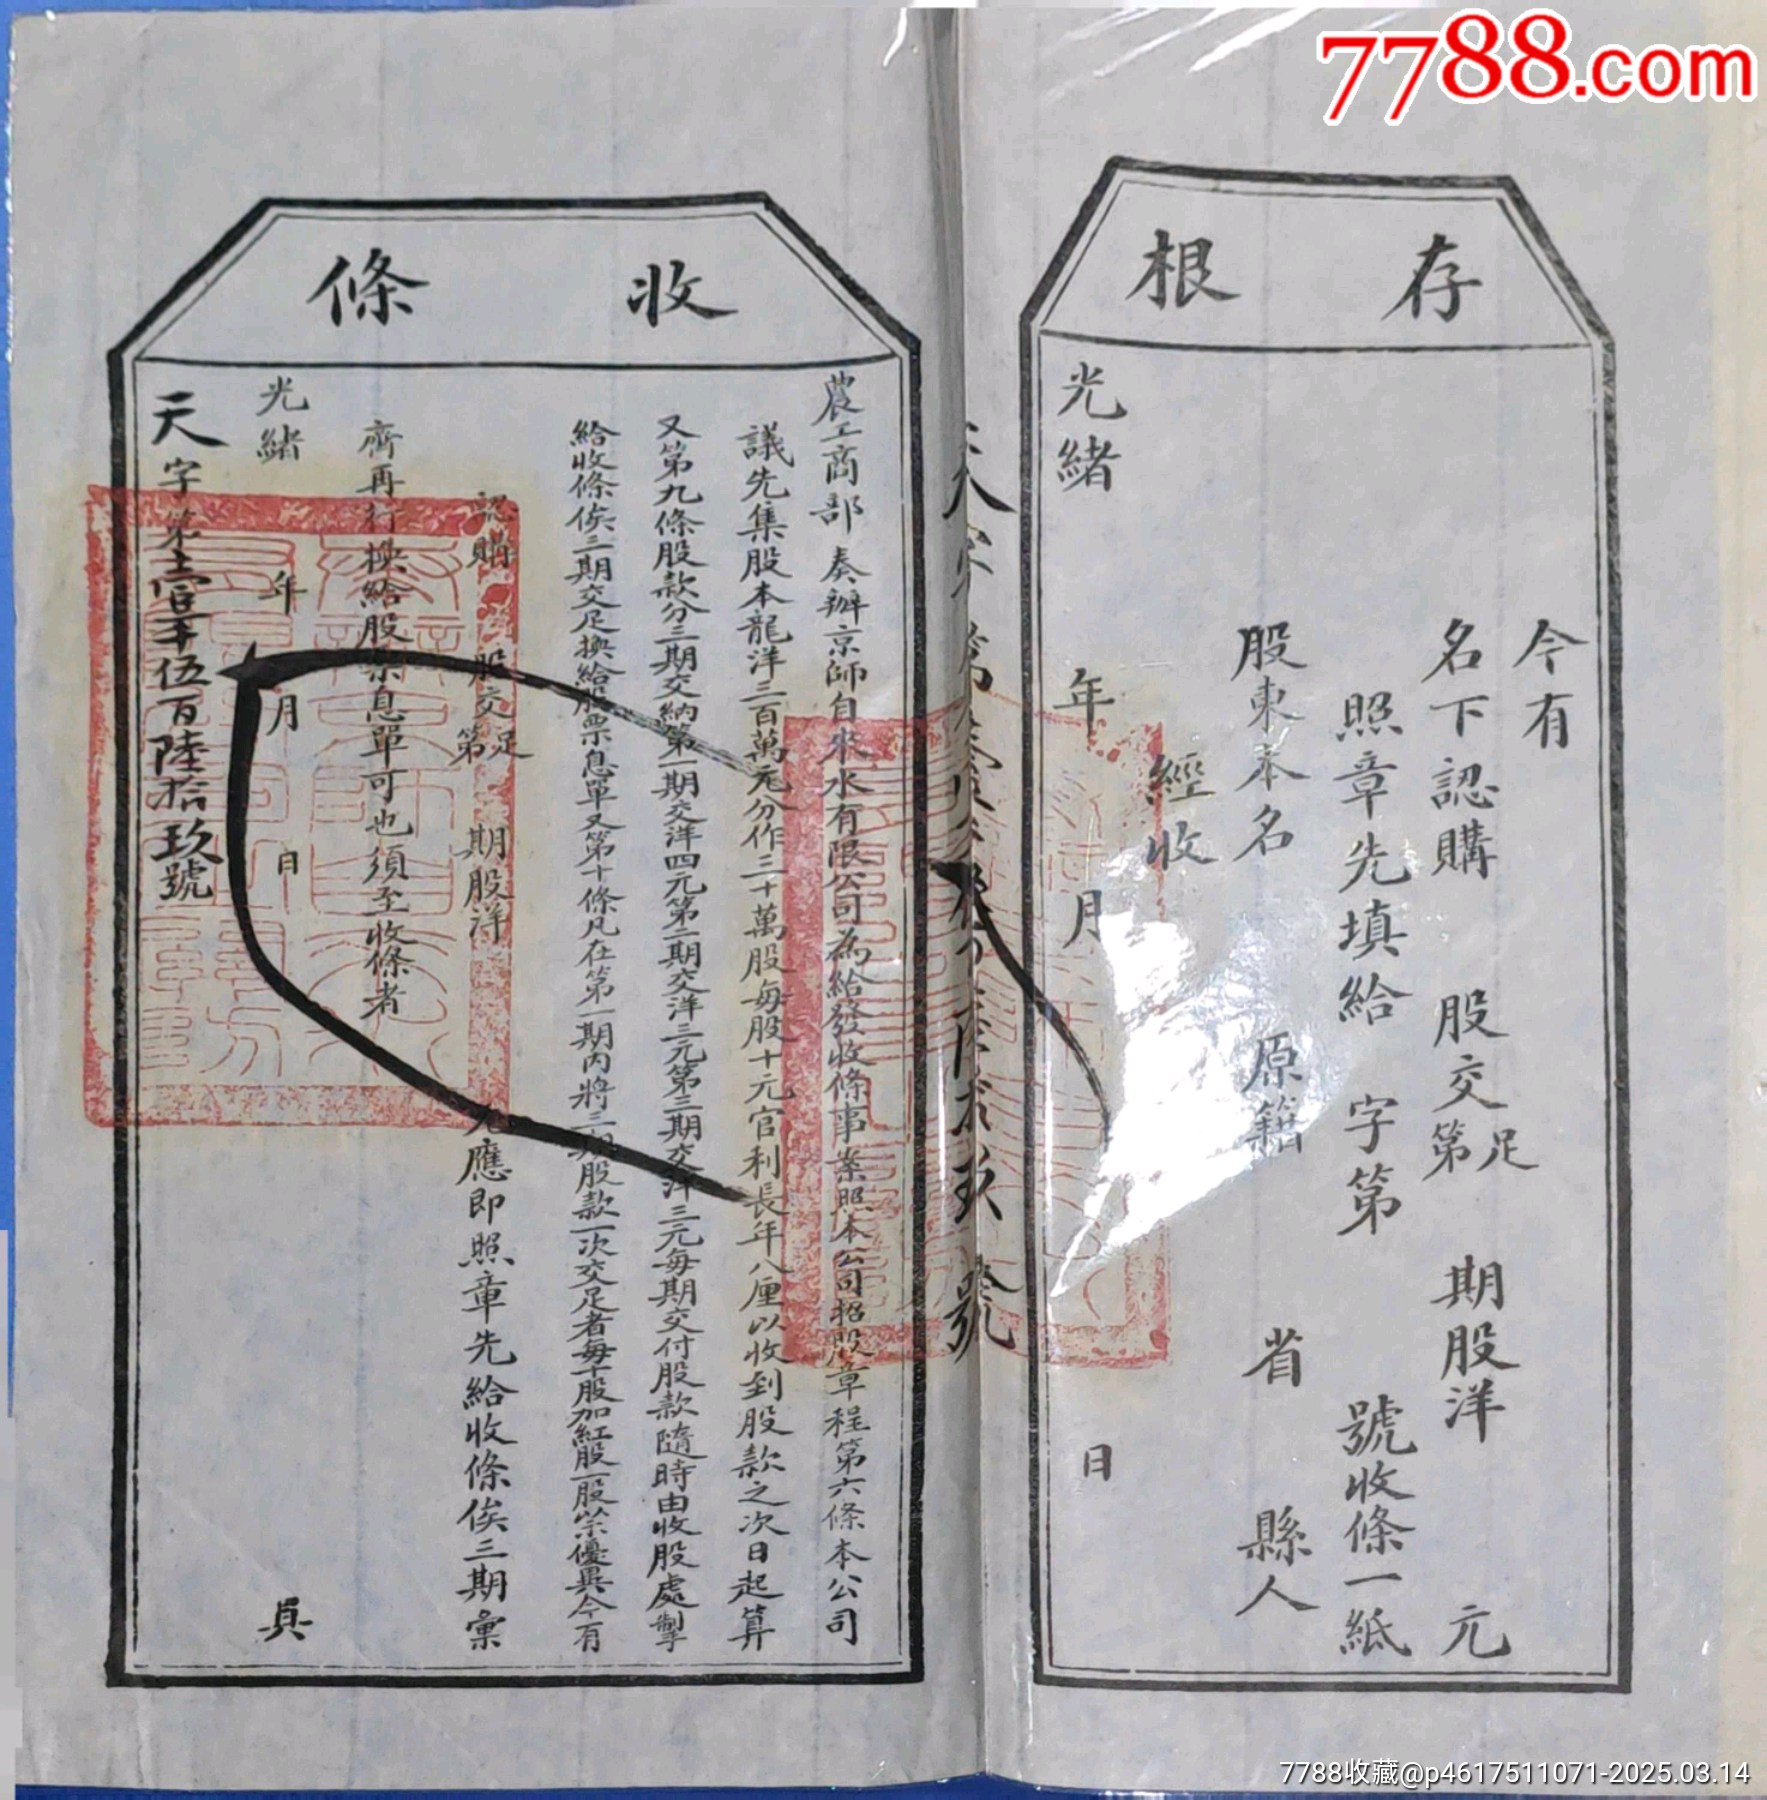 7788.com
存根
今有
名下認購 股交足第 期股洋 元
照章先填給 字第 號收條一紙
股東本名 原籍 省 縣人
經收
光緒 年 月 日
收條
農工商部奏辦京師自來水有限公司為給發收條事案照本公司招股章程第六條本公司
議先集股本龍洋三百萬元分作三十萬股每股十元官利長年八厘以收到股款之次日起算
又第九條股款分三期交納第一期交洋四元第二期交洋三元第三期交洋三元每期交付股款隨時由收股處掣
給收條俟三期交足換給股票息單又第十條凡在第一期內將三期股款一次交足者每十股加紅股一股以崇優異今有
認購 股交足第 期股洋 元應即照章先給收條俟三期彙
齊再行換給股票息單可也須至收條者
光緒 年 月 日 具
天字第 壹千伍百陸拾玖號
7788收藏@p4617511071-2025.03.14